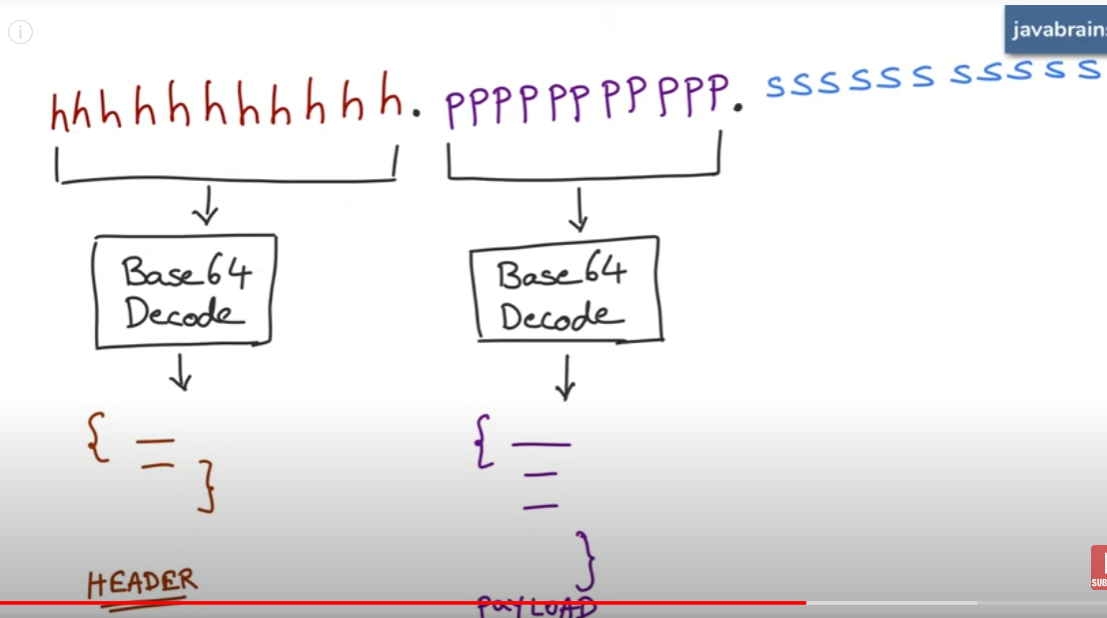 javabrains
hhhhhhhhhhh.pppppppppppp.sssssssssssss
Base64
Decode
Base64
Decode
{
}
{
}
HEADER
PAYLOAD
SUB